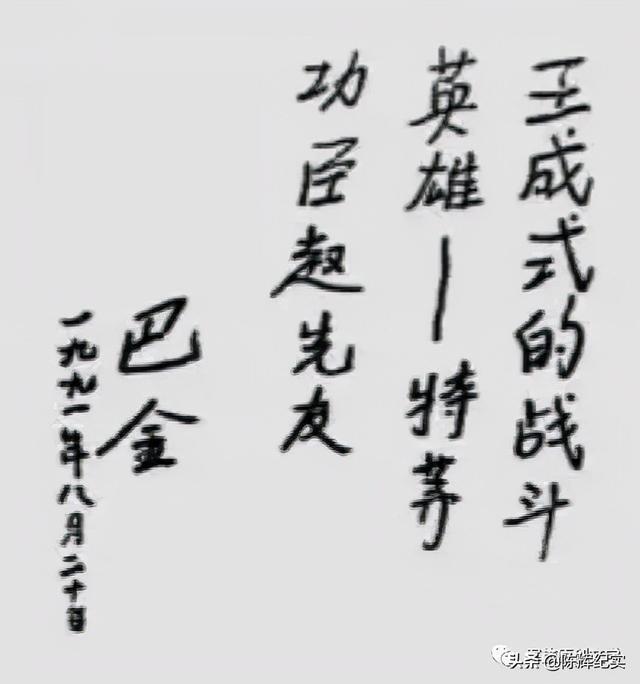 王成式的战斗
英雄—特等
功臣赵先友
巴金
一九九一年八月二十日
头条@陈辉纪实